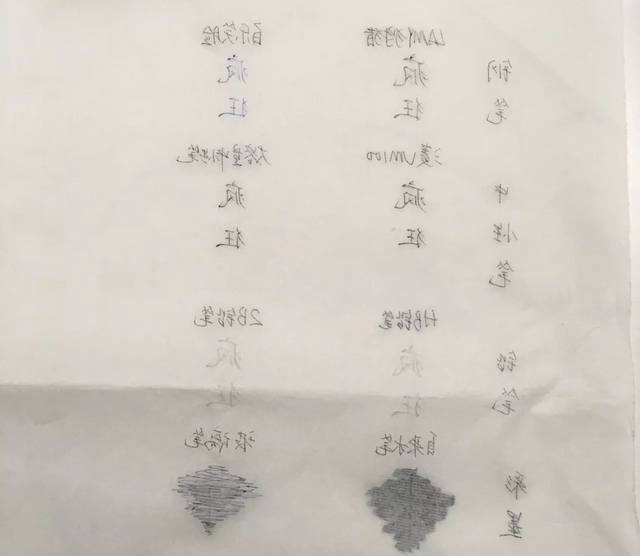 钢笔
LAMY狩猎 百乐笑脸
疯 疯
狂 狂
中性笔
三菱UM100
疯 疯
狂 狂
铅笔
HB铅笔 2B铅笔
疯 疯
狂 狂
自来水笔